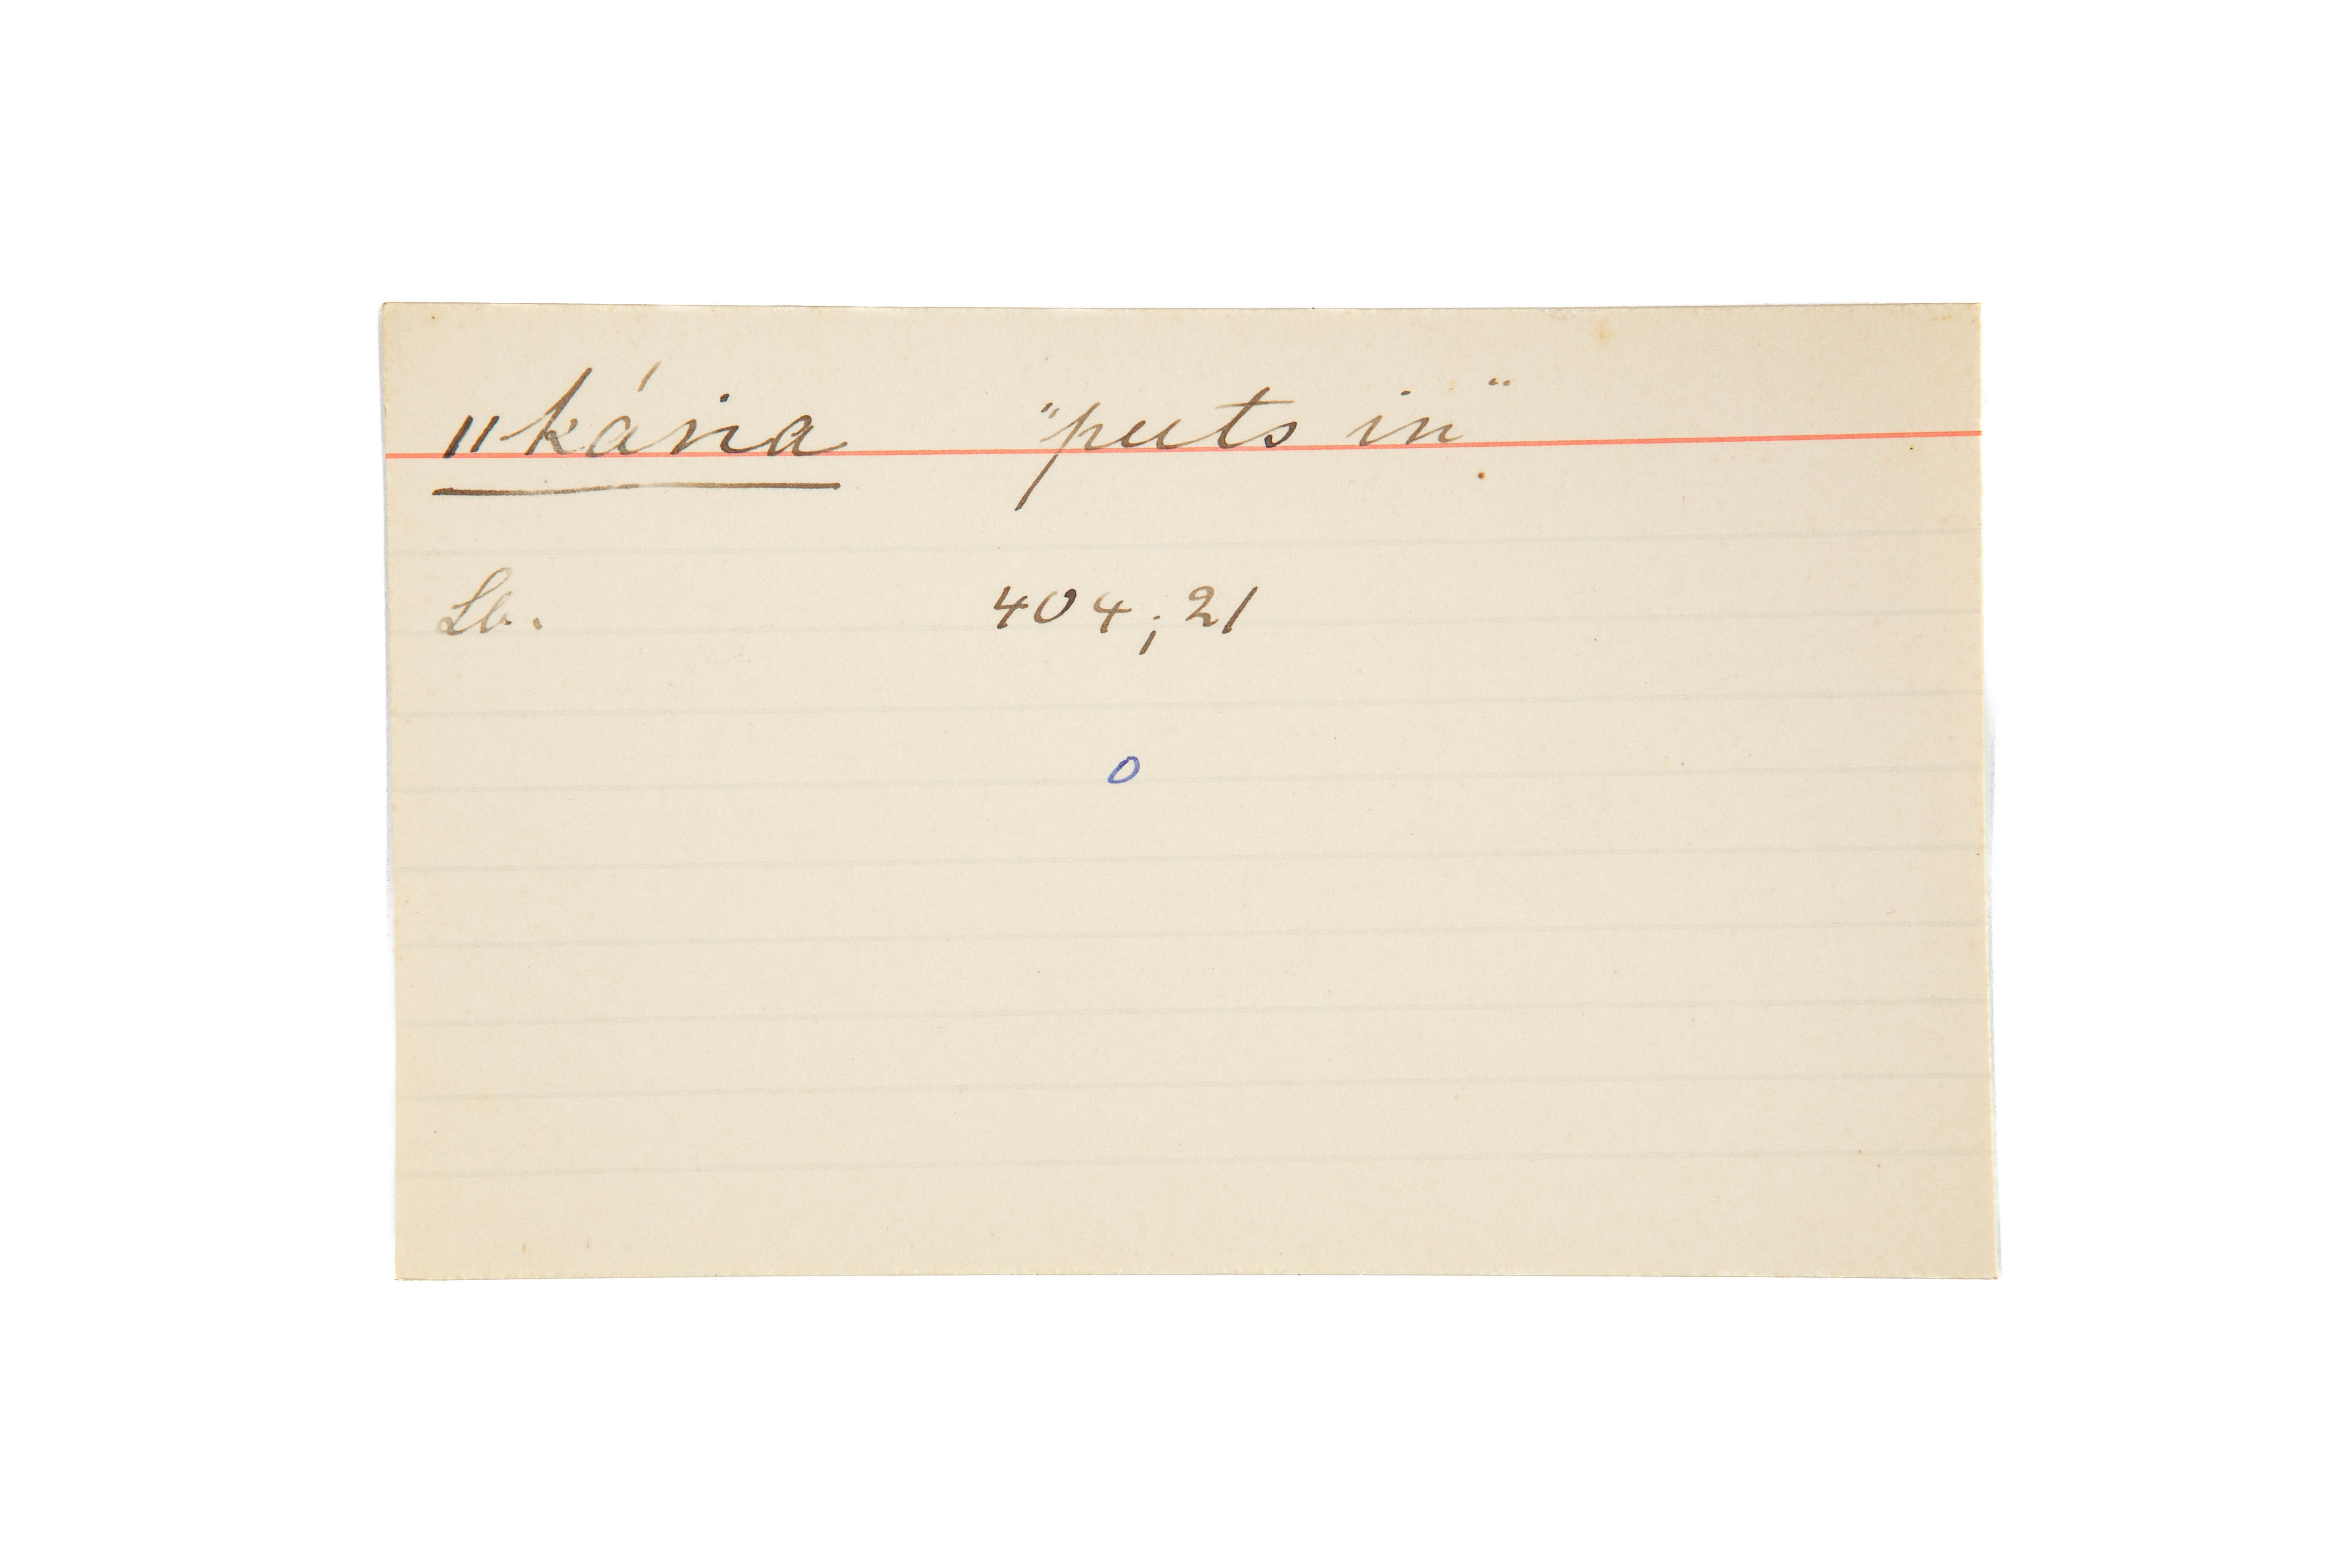 ǁkáṅa "puts in"
Lb. 404; 21
o